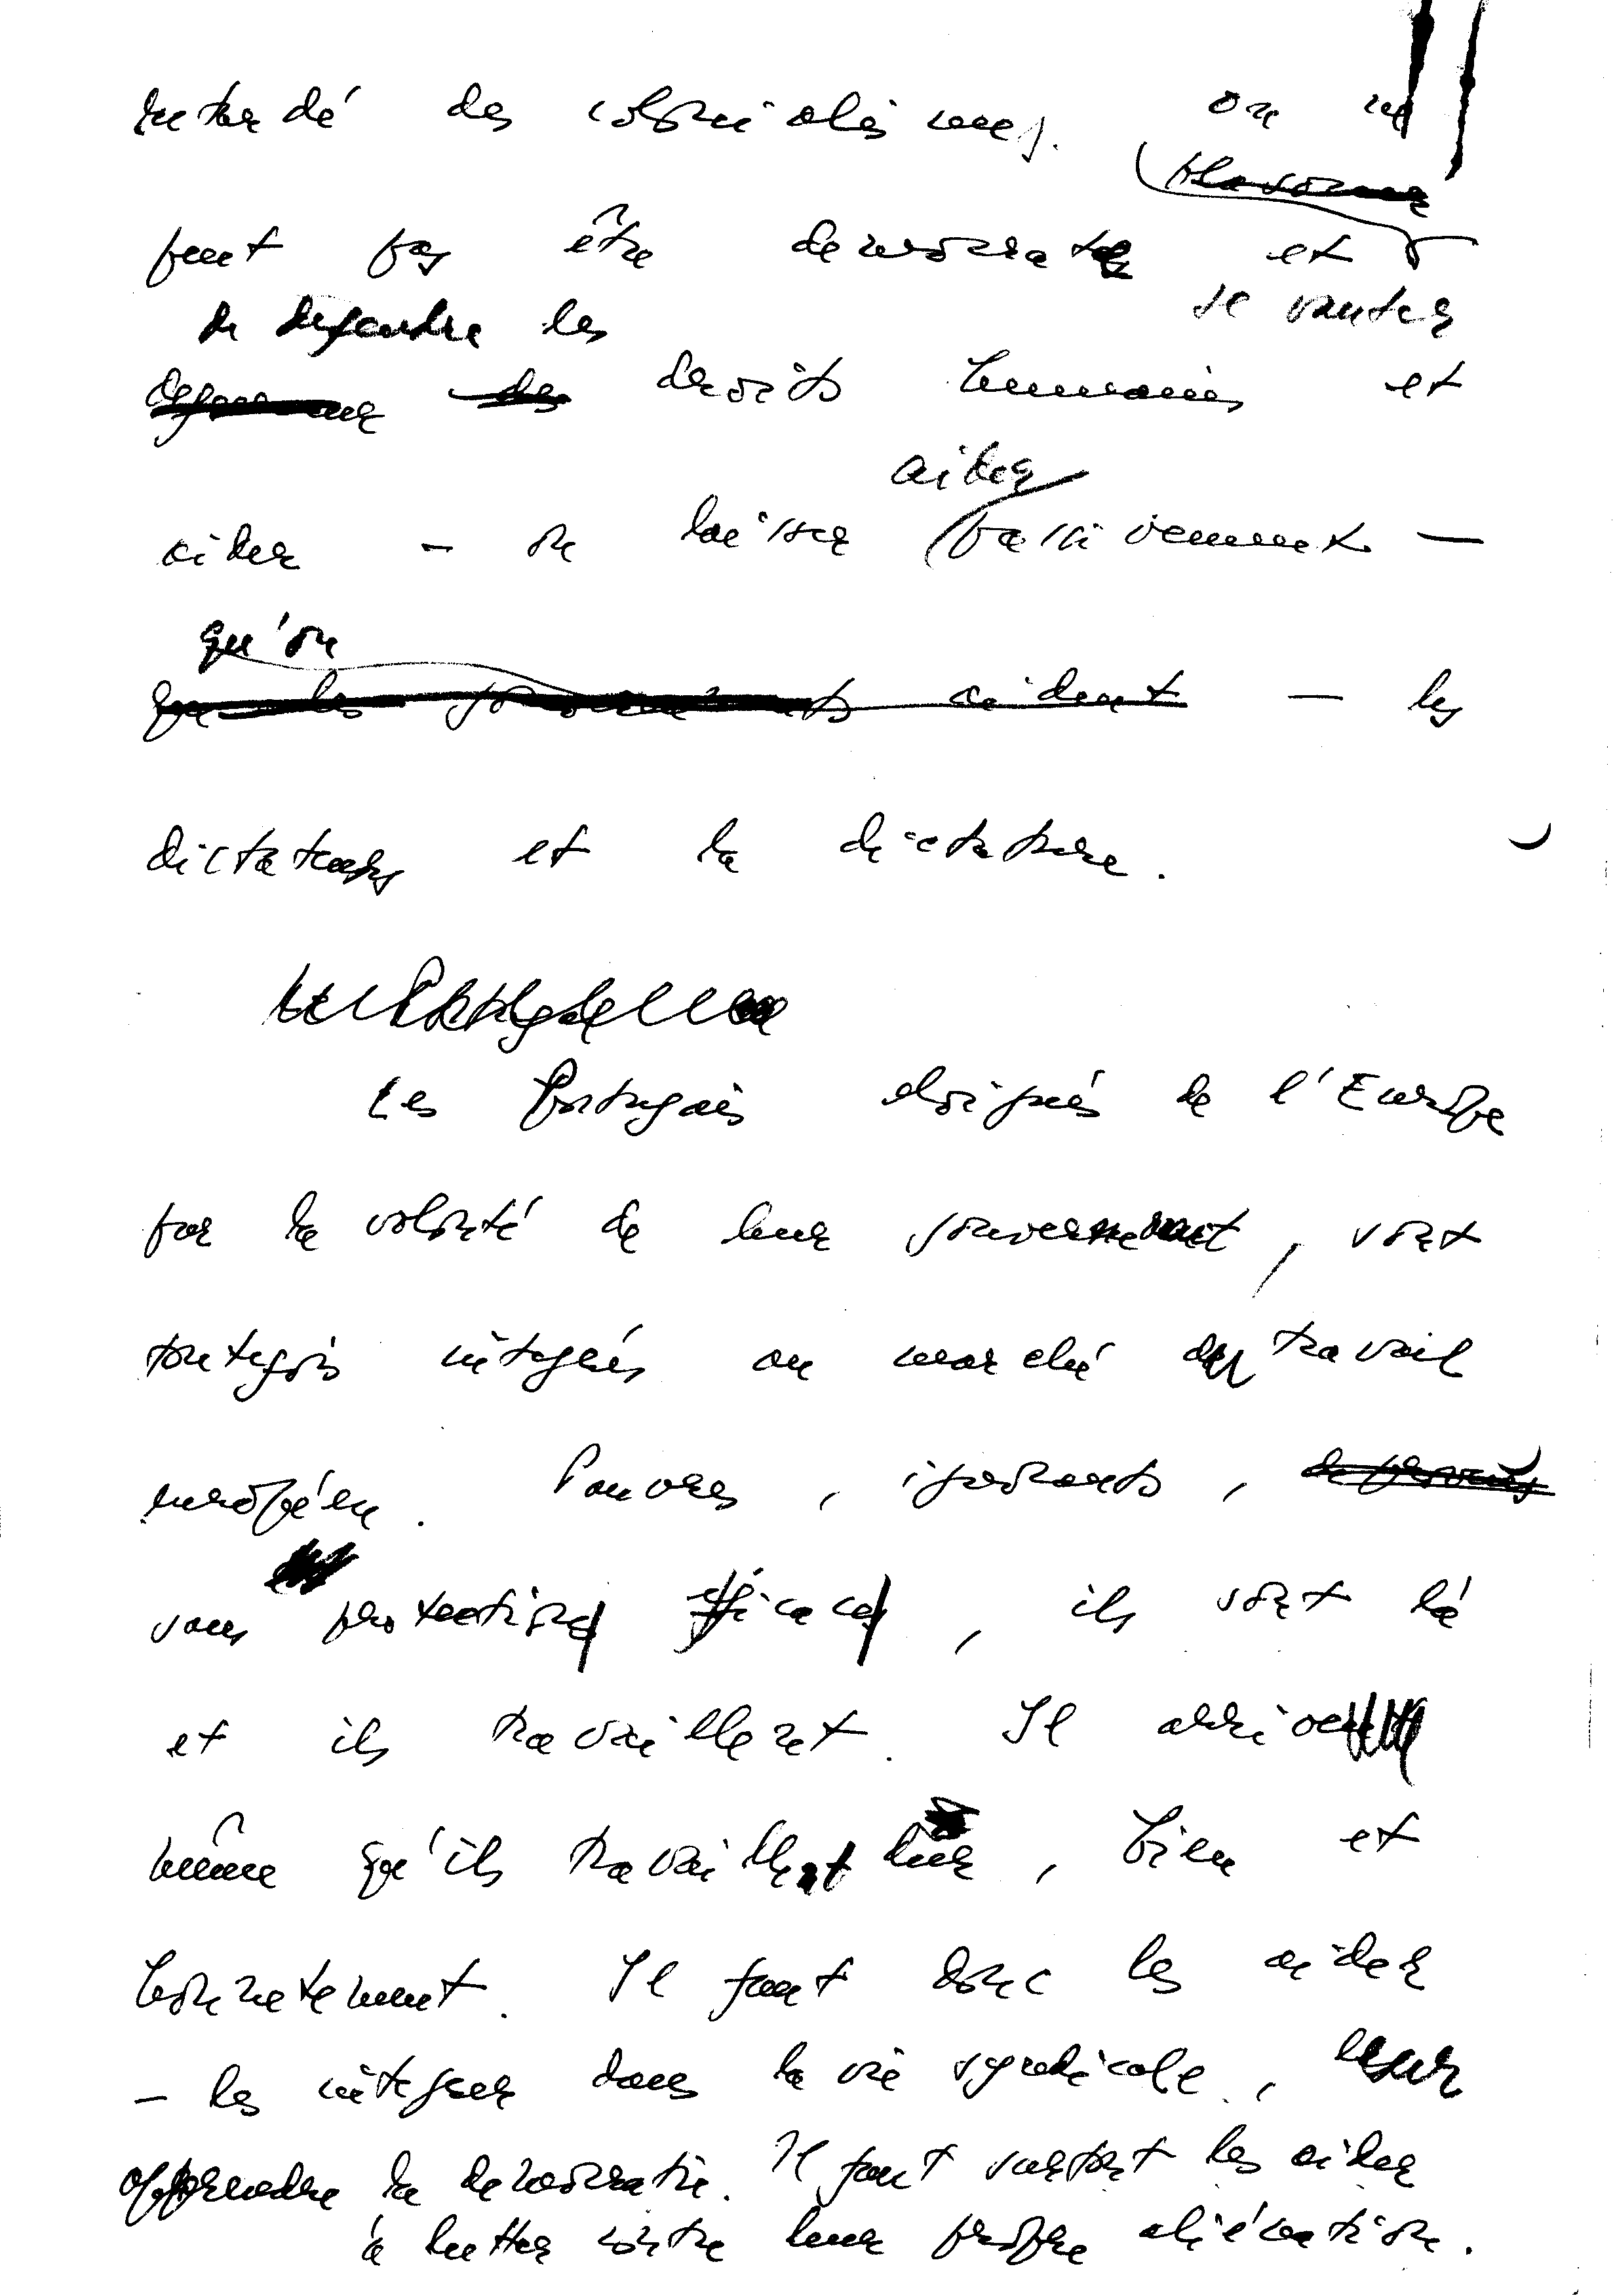 retardé des colonialismes. On ne
peut pas être democrate et
se vanter
de defendre les
droits humains et
aider
aider – ou laisser passivement –
qu'on
aident – les
dictateurs et la dictature.
Les Portugais eloignés de l'Europe
par la volonté de leur gouvernement, sont
toutefois intégrés au marché du travail
européen. Pauvres, ignorants,
sans protection efficace, ils sont là
et ils travaillent. Il arrive
même qu'ils travaillent bien, bien et
honnetement. Il faut donc les aider
– les integrer dans la vie syndicale, leur
apprendre la democratie. Il faut surtout les aider
à lutter contre leur propre aliénation.